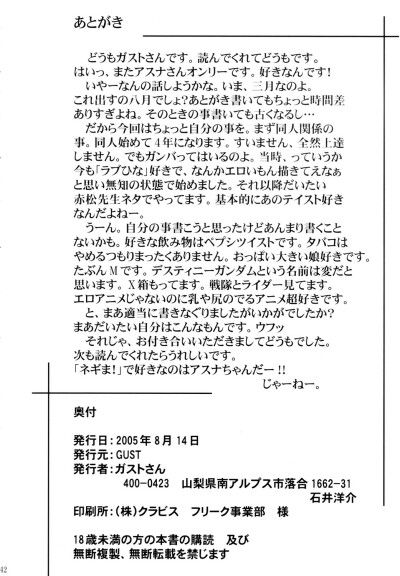 あとがき
どうもガストさんです。読んでくれてどうもです。
はいっ、またアスナさんオンリーです。好きなんです！
いやーなんの話しようかな。いま、三月なのよ。
これ出すの八月でしょ？あとがき書いてもちょっと時間差
ありすぎよね。そのときの事書いても古くなるし…
だから今回はちょっと自分の事を。まず同人関係の
事。同人始めて４年になります。すいません、全然上達
しません。でもガンバってはいるのよ。当時、っていうか
今も「ラブひな」好きで、なんかエロいもん描きてえなぁ
と思い無知の状態で始めました。それ以降だいたい
赤松先生ネタでやってます。基本的にあのテイスト好き
なんだよねー。
うーん。自分の事書こうと思ったけどあんまり書くこと
ないかも。好きな飲み物はペプシツイストです。タバコは
やめるつもりまったくありません。おっぱい大きい娘好きです。
たぶんＭです。デスティニーガンダムという名前は変だと
思います。Ｘ箱もってます。戦隊とライダー見てます。
エロアニメじゃないのに乳や尻のでるアニメ超好きです。
と、まあ適当に書きなぐりましたがいかがでしたか？
まあだいたい自分はこんなもんです。ウフッ
それじゃ、お付き合いいただきましてどうもでした。
次も読んでくれたらうれしいです。
「ネギま！」で好きなのはアスナちゃんだー！！
じゃーねー。
奥付
発行日：2005年8月14日
発行元：GUST
発行者：ガストさん
400-0423　山梨県南アルプス市落合 1662-31
石井洋介
印刷所：（株）クラビス　フリーク事業部　様
18歳未満の方の本書の購読　及び
無断複製、無断転載を禁じます
42